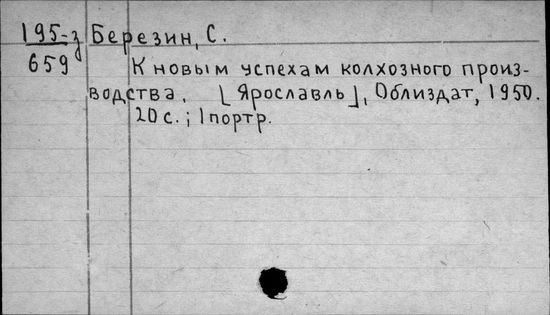 195-3 Березин, С.
659 К новым успехам колхозного произ-
водства. [Ярославль], Облиздат, 1950.
20 с.; 1 портр.